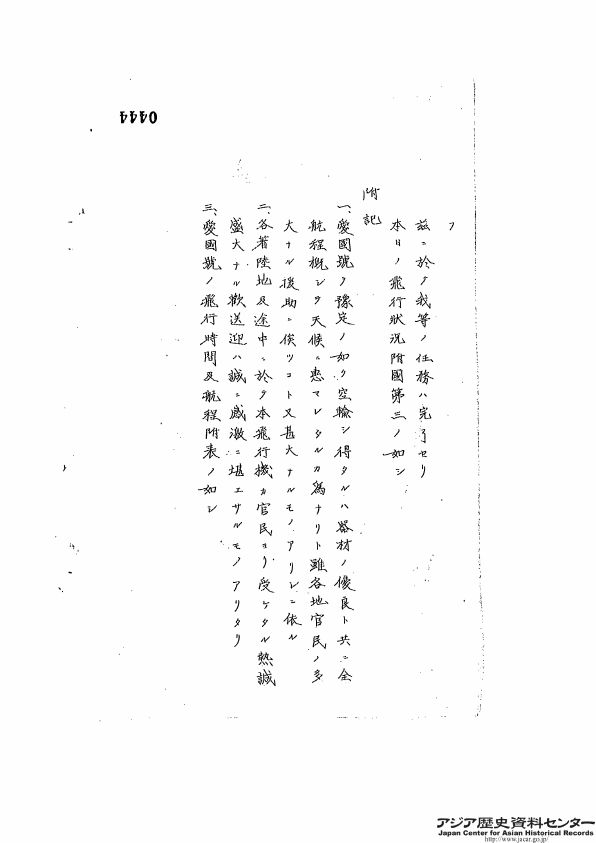 0444
フ
茲ニ於テ我等ノ任務ハ完了セリ
本日ノ飛行状況附國第三ノ如シ
附記
一、愛國號ヲ豫定ノ如ク空輸シ得タルハ器材ノ優良ト共ニ全
航程概シテ天候ニ恵マレタルカ為ナリト雖各地官民ノ多
大ナル後助ニ俟ツコト又甚大ナルモノアリシニ依ル
二、各着陸地及途中ニ於テ本飛行機カ官民ヨリ受ケタル熱誠
盛大ナル歓送迎ハ誠ニ感激ニ堪エサルモノアリタリ
三、愛國號ノ飛行時間及航程附表ノ如シ
アジア歴史資料センター
Japan Center for Asian Historical Records
http://www.jacar.go.jp/